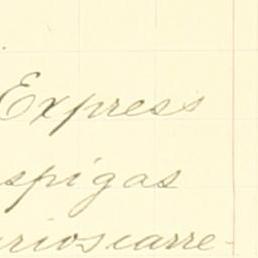 Express
spigas
arios carre-